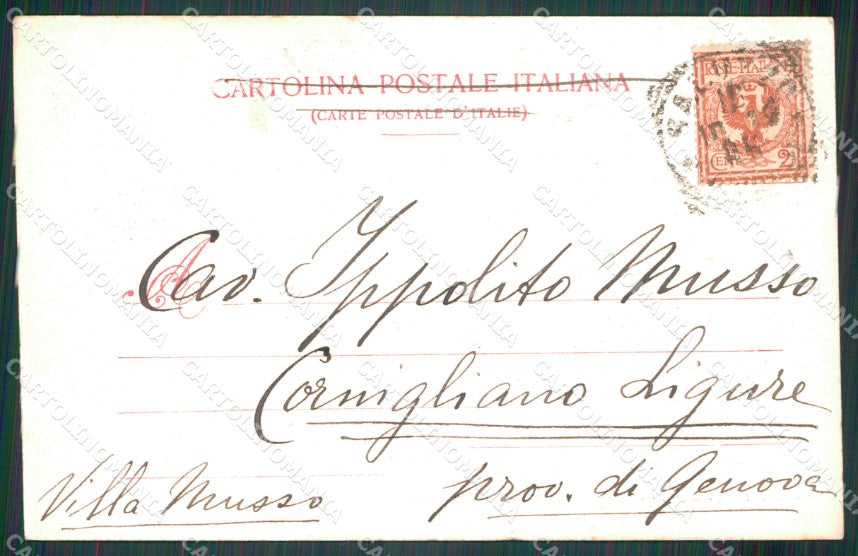 CARTOLINA POSTALE ITALIANA
(CARTE POSTALE D'ITALIE)
A
Cav. Ippolito Musso
Cornigliano Ligure
prov. di Genova
Villa Musso
CARTOLINOMANIA